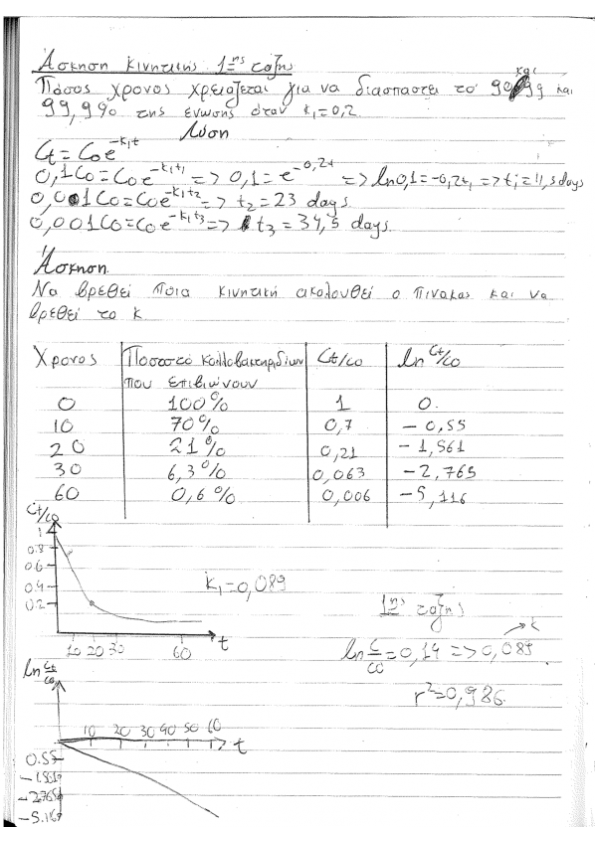 Άσκηση κινητικής 1ης τάξης
Πόσος χρόνος χρειάζεται για να διασπαστεί το 90 και 99 και
99,9% της ένωσης όταν k₁=0,2
Λύση
Ct = Coe^-k₁t
0,1Co = Coe^-k₁t₁ => 0,1 = e^-0,2t => ln0,1 = -0,2t₁ => t₁ = 11,5 days
0,01Co = Coe^-k₁t₂ => t₂ = 23 days
0,001Co = Coe^-k₁t₃ => t₃ = 34,5 days
Άσκηση
Να βρεθεί ποια κινητική ακολουθεί ο πινακας και να
βρεθεί το k
Χρονος Ποσοστό κολλοβακτηριδίων Ct/co ln Ct/co
που επιβιώνουν
0 100% 1 0
10 70% 0,7 -0,55
20 21% 0,21 -1,561
30 6,3% 0,063 -2,765
60 0,6% 0,006 -5,116
Ct/co
1
0.8
0.6
0.4
0.2
10 20 30 60 t
k₁=0,089
1ης τάξης
ln C/Co = 0,14 => 0,089 k
r²=0,986
ln Ct/co
10 20 30 40 50 60 t
0.55
-1.561
-2.765
-5.116